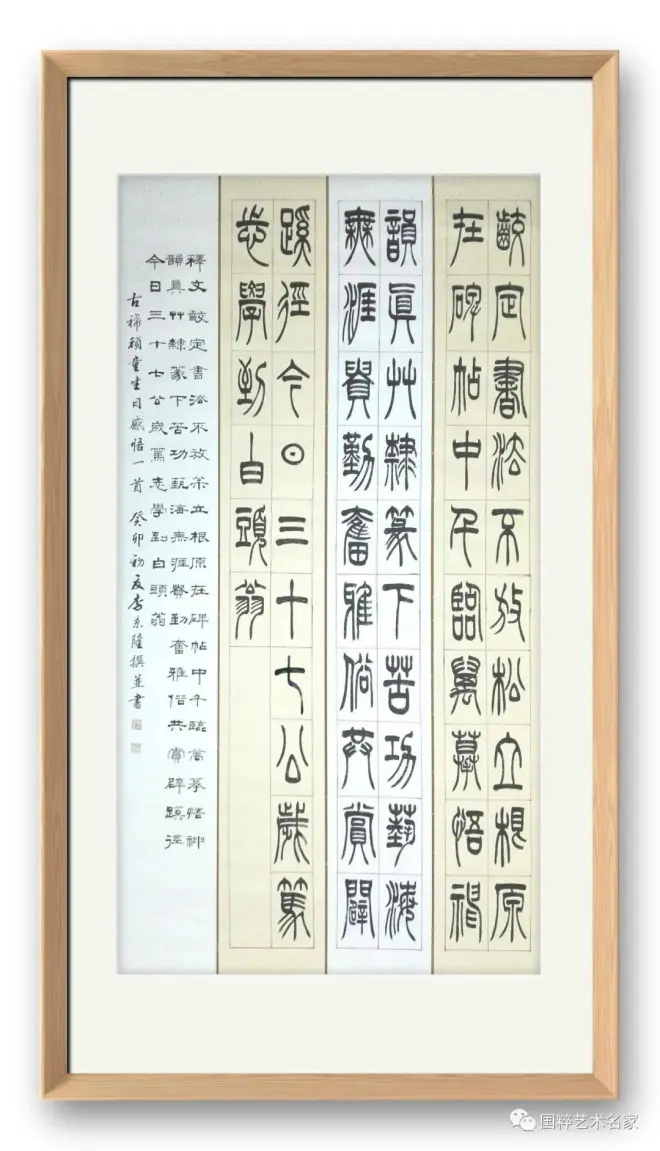 齩定書法不放松立根原
在碑帖中千臨萬摹悟神
韻眞艸隸篆下苦功藝海
無涯貴勤奮雅俗共賞闢
蹊徑今日三十七公歲篤
志學到白頭翁
釋文 齩定書法不放松立根原在碑帖中千臨萬摹悟神
韻真艸隸篆下苦功藝海無涯貴勤奮雅俗共賞辟蹊徑
今日三十七公歲篤志學到白頭翁
古稀頑童生日感悟一首 癸卯初夏李隆撰並書
国粹艺术名家